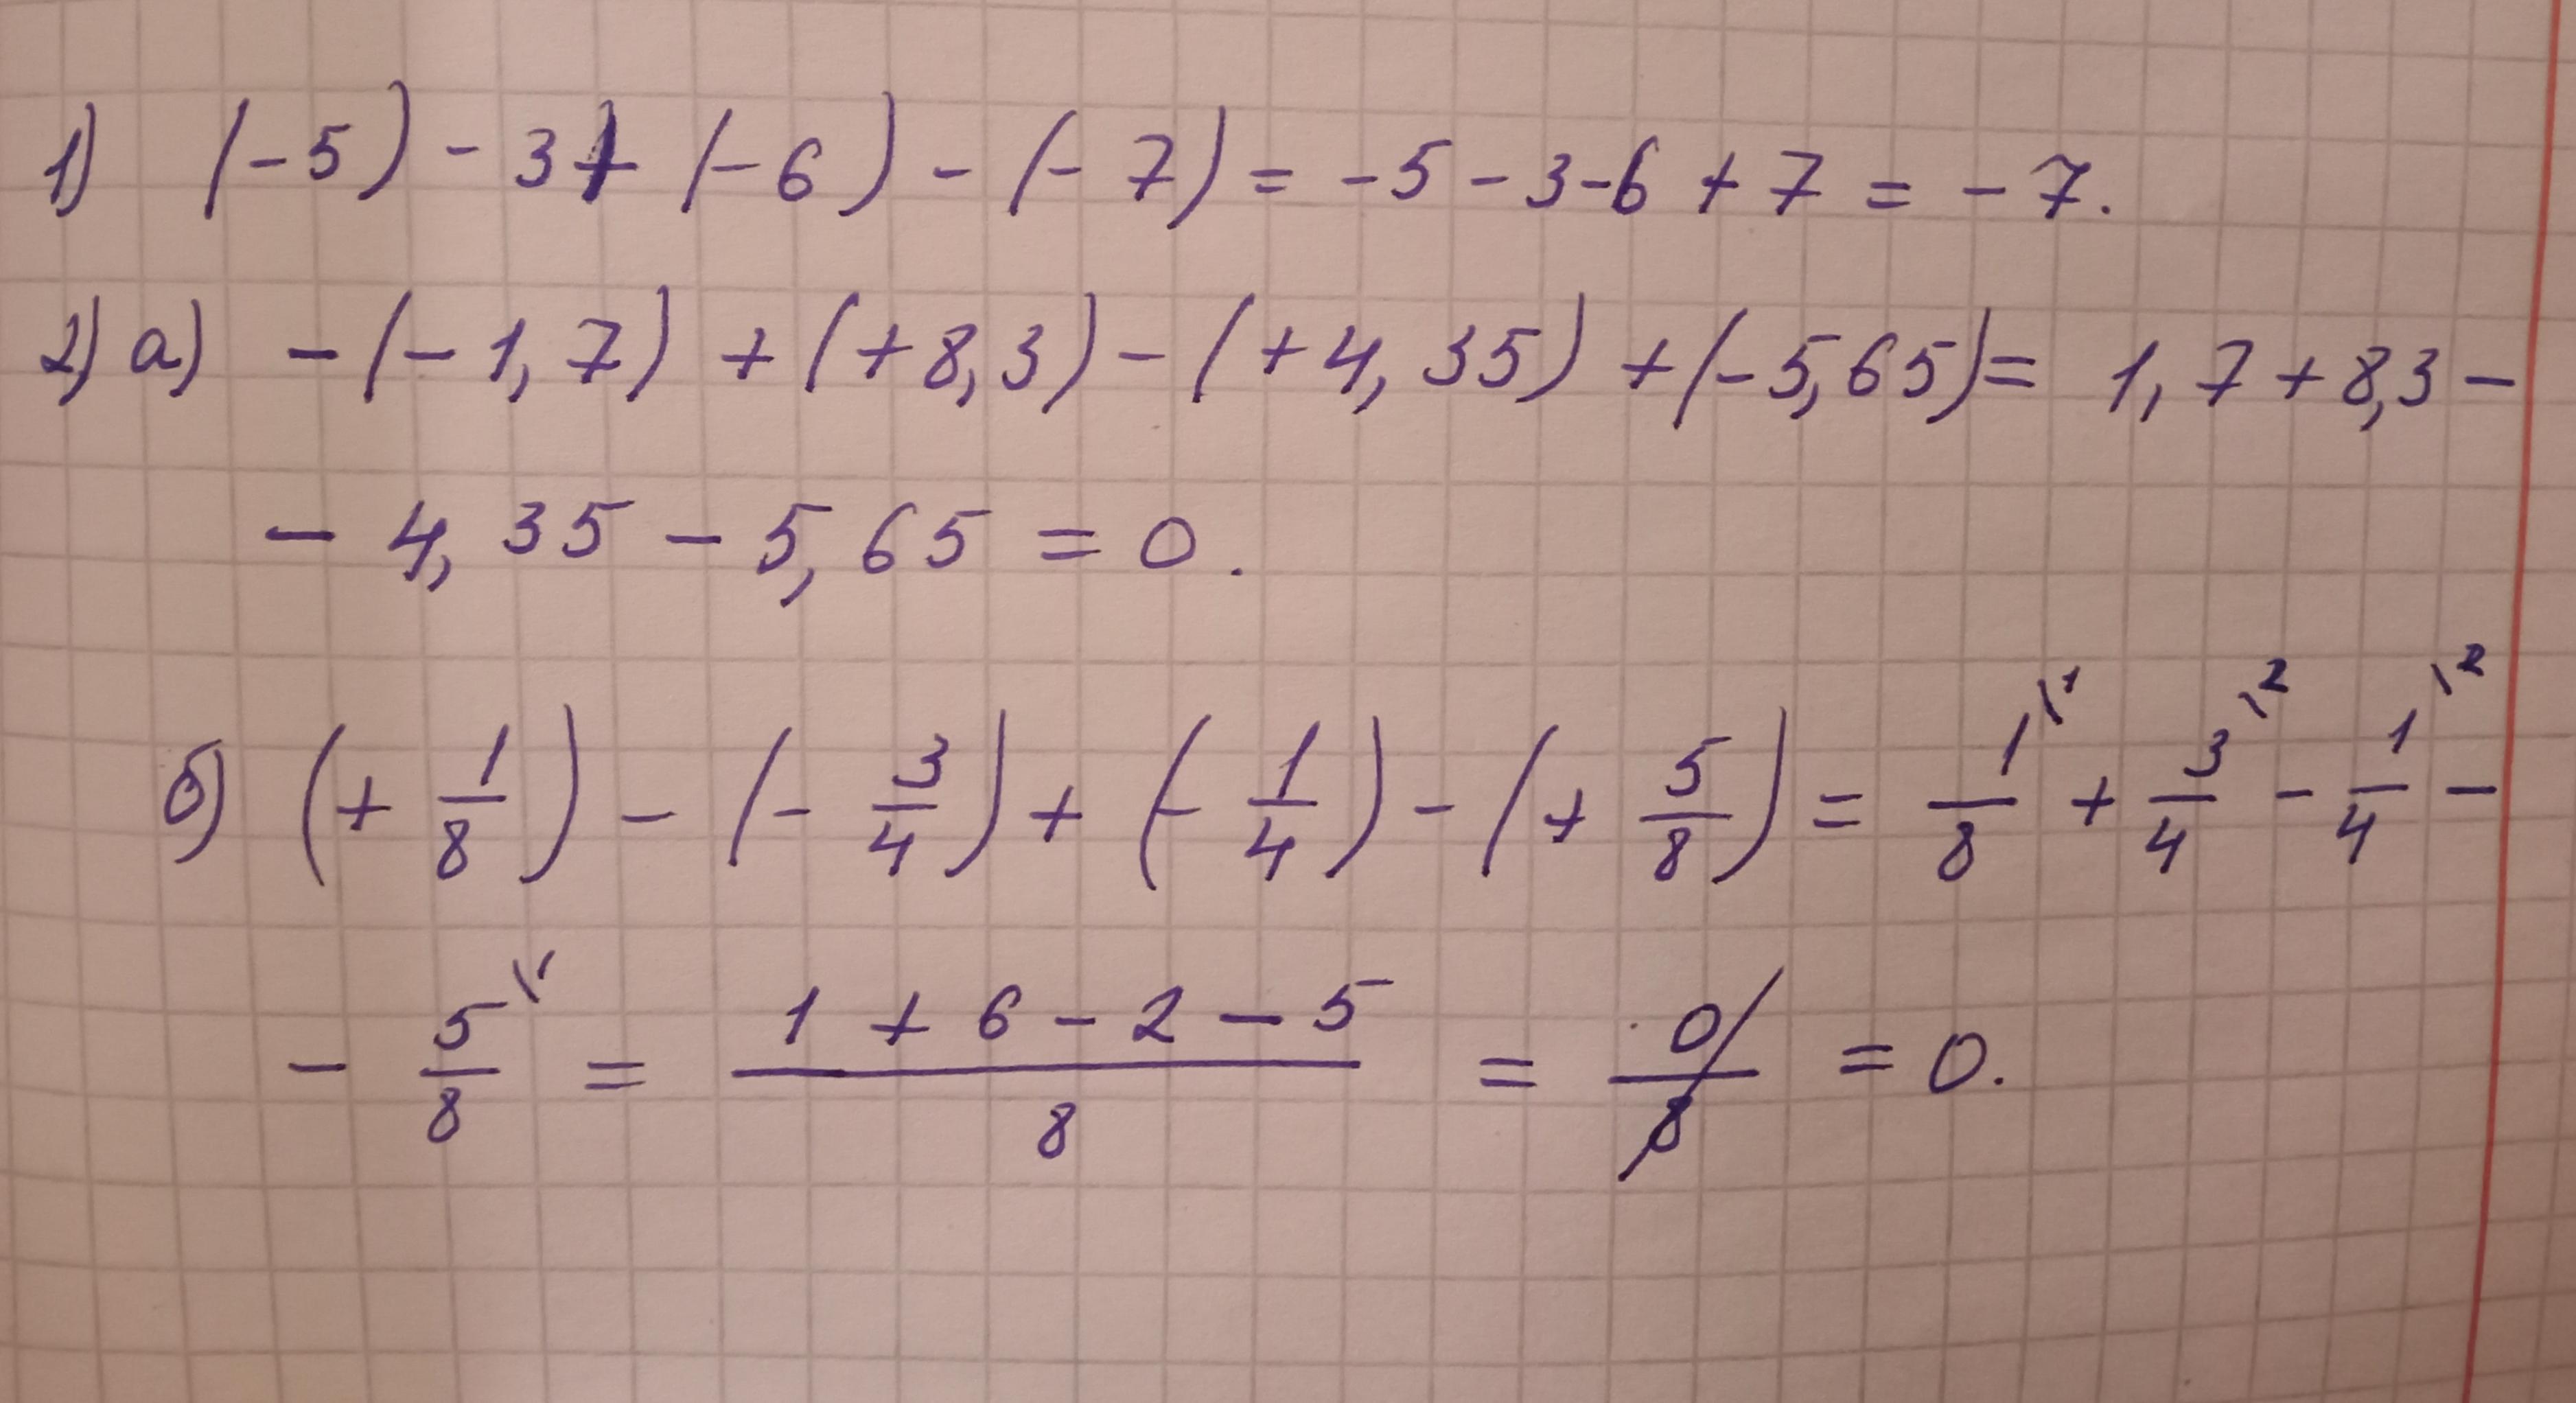 1) (-5) - 3 + (-6) - (-7) = -5 - 3 - 6 + 7 = -7.
2) а) -(-1,7) + (+8,3) - (+4,35) + (-5,65) = 1,7 + 8,3 -
- 4,35 - 5,65 = 0.
б) (+ 1/8) - (- 3/4) + (- 1/4) - (+ 5/8) = 1/8 \1 + 3/4 \2 - 1/4 \2 -
- 5/8 \1 = (1 + 6 - 2 - 5)/8 = 0/8 = 0.